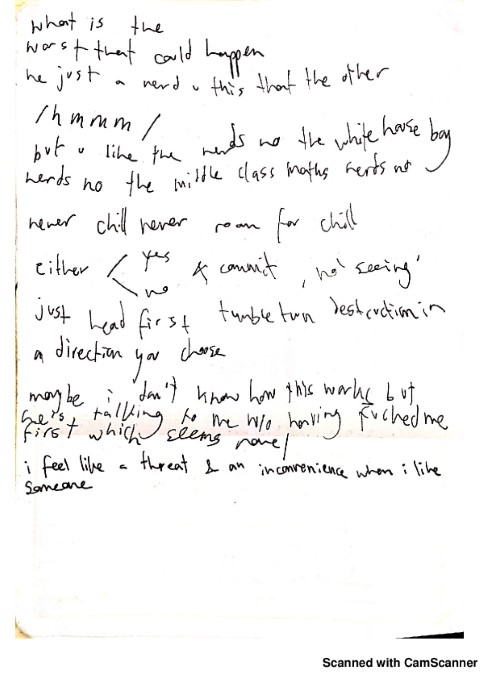 what is the
worst that could happen
he just a nerd u this that the other
/hmmm/
but u like the nerds no the white house boy
nerds no the middle class maths nerds no
never chill never room for chill
either < yes & commit, no 'seeing'
no
just head first tumble turn destruction in
a direction you choose
maybe i don't know how this works but
he's talking to me w/o having fucked me
first which seems novel
i feel like a threat & an inconvenience when i like
someone
Scanned with CamScanner